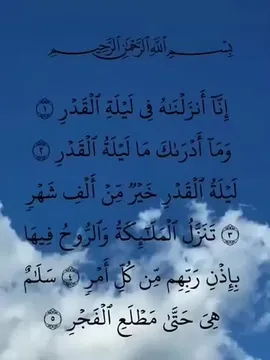 بِسْمِ ٱللَّهِ ٱلرَّحْمَٰنِ ٱلرَّحِيمِ
إِنَّآ أَنزَلْنَٰهُ فِى لَيْلَةِ ٱلْقَدْرِ ١
وَمَآ أَدْرَىٰكَ مَا لَيْلَةُ ٱلْقَدْرِ ٢
لَيْلَةُ ٱلْقَدْرِ خَيْرٌ مِّنْ أَلْفِ شَهْرٍ
٣ تَنَزَّلُ ٱلْمَلَٰٓئِكَةُ وَٱلرُّوحُ فِيهَا
بِإِذْنِ رَبِّهِم مِّن كُلِّ أَمْرٍ ٤ سَلَٰمٌ
هِىَ حَتَّىٰ مَطْلَعِ ٱلْفَجْرِ ٥